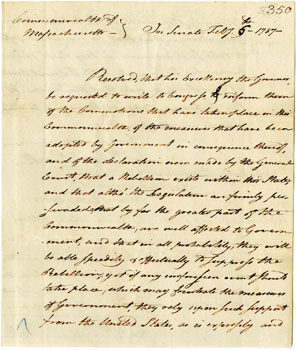 350
Commonwealth of
Massachusetts
In Senate Feby. 6th 1787
Resolved, that his Excellency the Governor
be requested to write to Congress & inform them
of the Commotions that have taken place in this
Commonwealth, of the measures that have been
adopted by Government in consequence thereof,
and of the declaration now made by the General
Court, that a Rebellion exists within this State;
and that altho' the Legislature are firmly per-
swaded, that by far the greater part of the
Commonwealth, are well affected to Govern-
ment, and that in all probability, they will
be able speedily & effectually to suppress the
Rebellion; yet if any unforeseen event should
take place, which may frustrate the measures
of Government, they rely upon such support
from the United States, as is expressly and